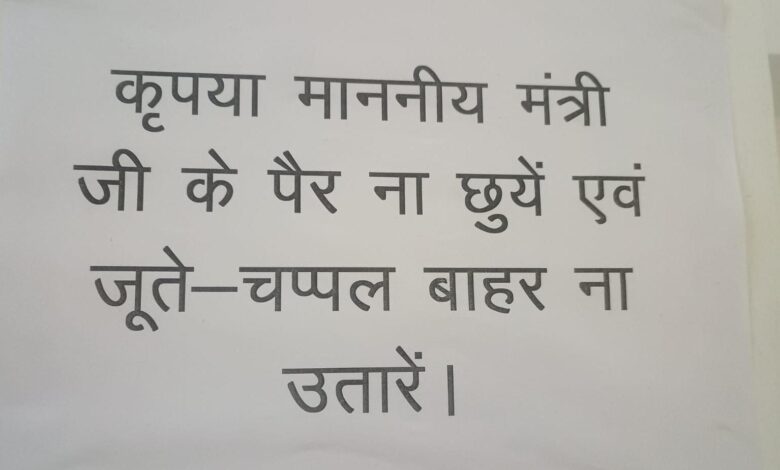 कृपया माननीय मंत्री
जी के पैर ना छुयें एवं
जूते–चप्पल बाहर ना
उतारें।